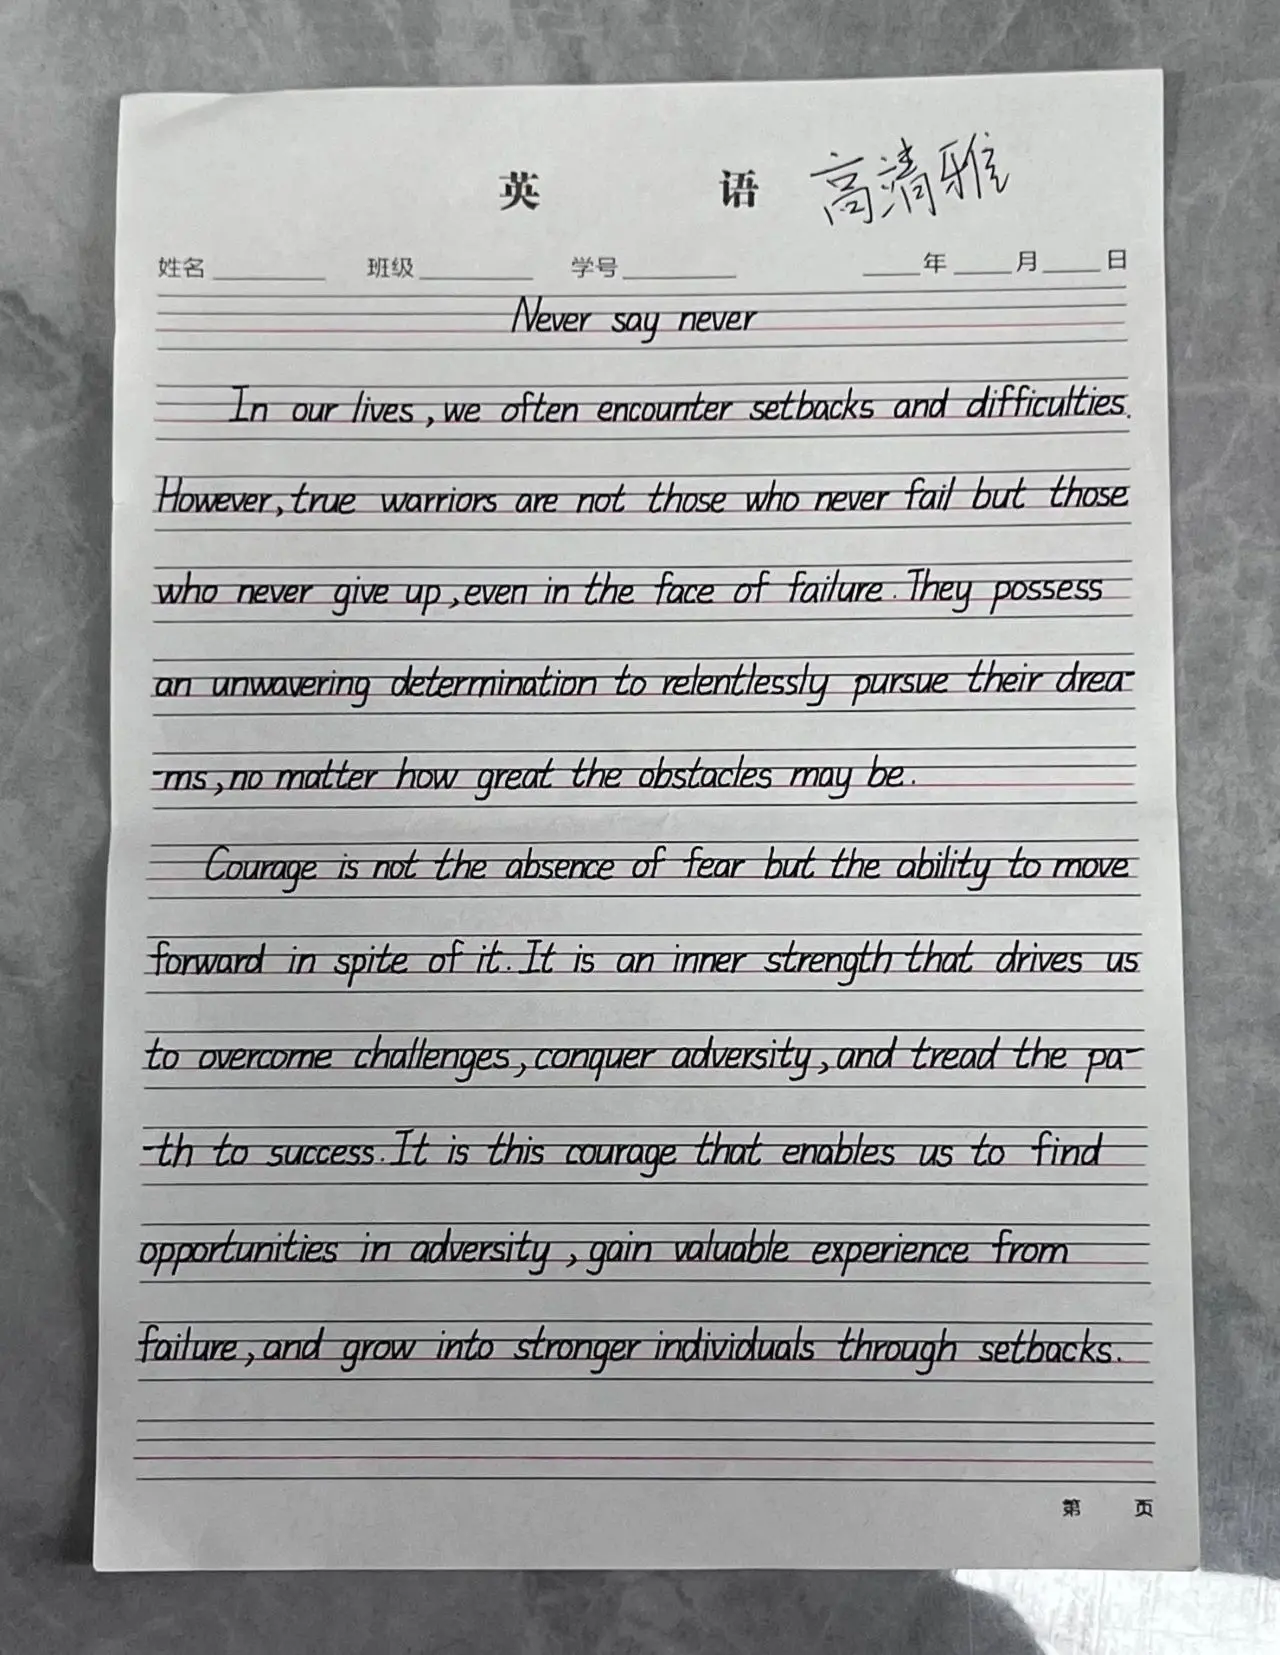 英 语 高清雅
姓名 班级 学号 年 月 日
Never say never
In our lives, we often encounter setbacks and difficulties.
However, true warriors are not those who never fail but those
who never give up, even in the face of failure. They possess
an unwavering determination to relentlessly pursue their drea-
-ms, no matter how great the obstacles may be.
Courage is not the absence of fear but the ability to move
forward in spite of it. It is an inner strength that drives us
to overcome challenges, conquer adversity, and tread the pa-
-th to success. It is this courage that enables us to find
opportunities in adversity, gain valuable experience from
failure, and grow into stronger individuals through setbacks.
第 页